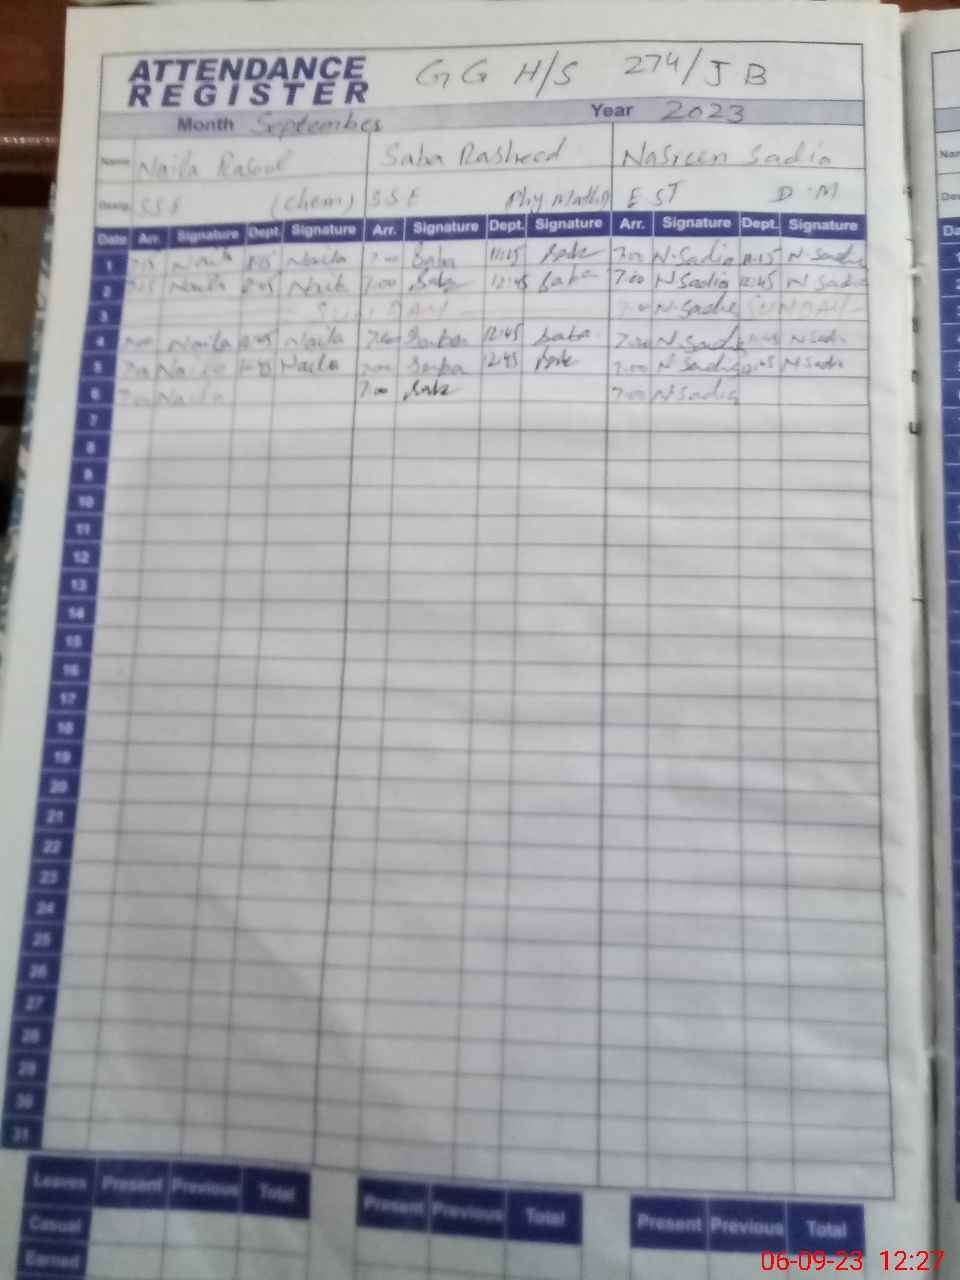 ATTENDANCE REGISTER GG H/S 274/JB
Month September Year 2023
Name Naila Rasool Saba Rasheed Nasreen Sadia
Desig. SSE (Chem) SSE Phy Maths EST D.M
Date Arr. Signature Dept. Signature Arr. Signature Dept. Signature Arr. Signature Dept. Signature
1 Naila Naila 7.00 Saba 11:15 Saba 7.00 N.Sadia 11:15 N.Sadia
2 Naila Naila 7.00 Saba 12:45 Saba 7.00 N Sadia 12:45 N Sadia
3 SUNDAY N.Sadia SUNDAY
4 Naila Naila 7.00 Saba 12:45 Saba 7.00 N Sadia N Sadia
5 Naila Naila 7.00 Saba 12:45 Saba 7.00 N Sadia N Sadia
6 Naila 7.00 Saba 7.00 N Sadia
7
8
9
10
11
12
13
14
15
16
17
18
19
20
21
22
23
24
25
26
27
28
29
30
31
Leaves Present Previous Total Present Previous Total Present Previous Total
Casual
Earned
06-09-23 12:27